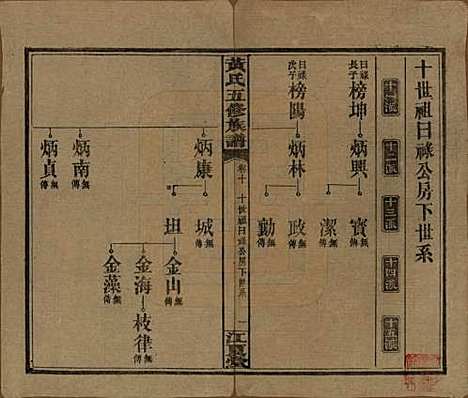 十世祖曰祿公房下世系
十一派
十二派
十三派
十四派
十五派
曰祿長子
榜坤
炳興
寶 無傳
潔 無傳
曰祿次子
榜陽
炳林
政 無傳
勳 無傳
黃氏五修族譜
卷十 十世祖曰祿公房下世系 一
江夏堂
炳康
城 無傳
坦
金山 無傳
金海
枝律 無傳
金藻 無傳
炳南 無傳
炳貞 無傳